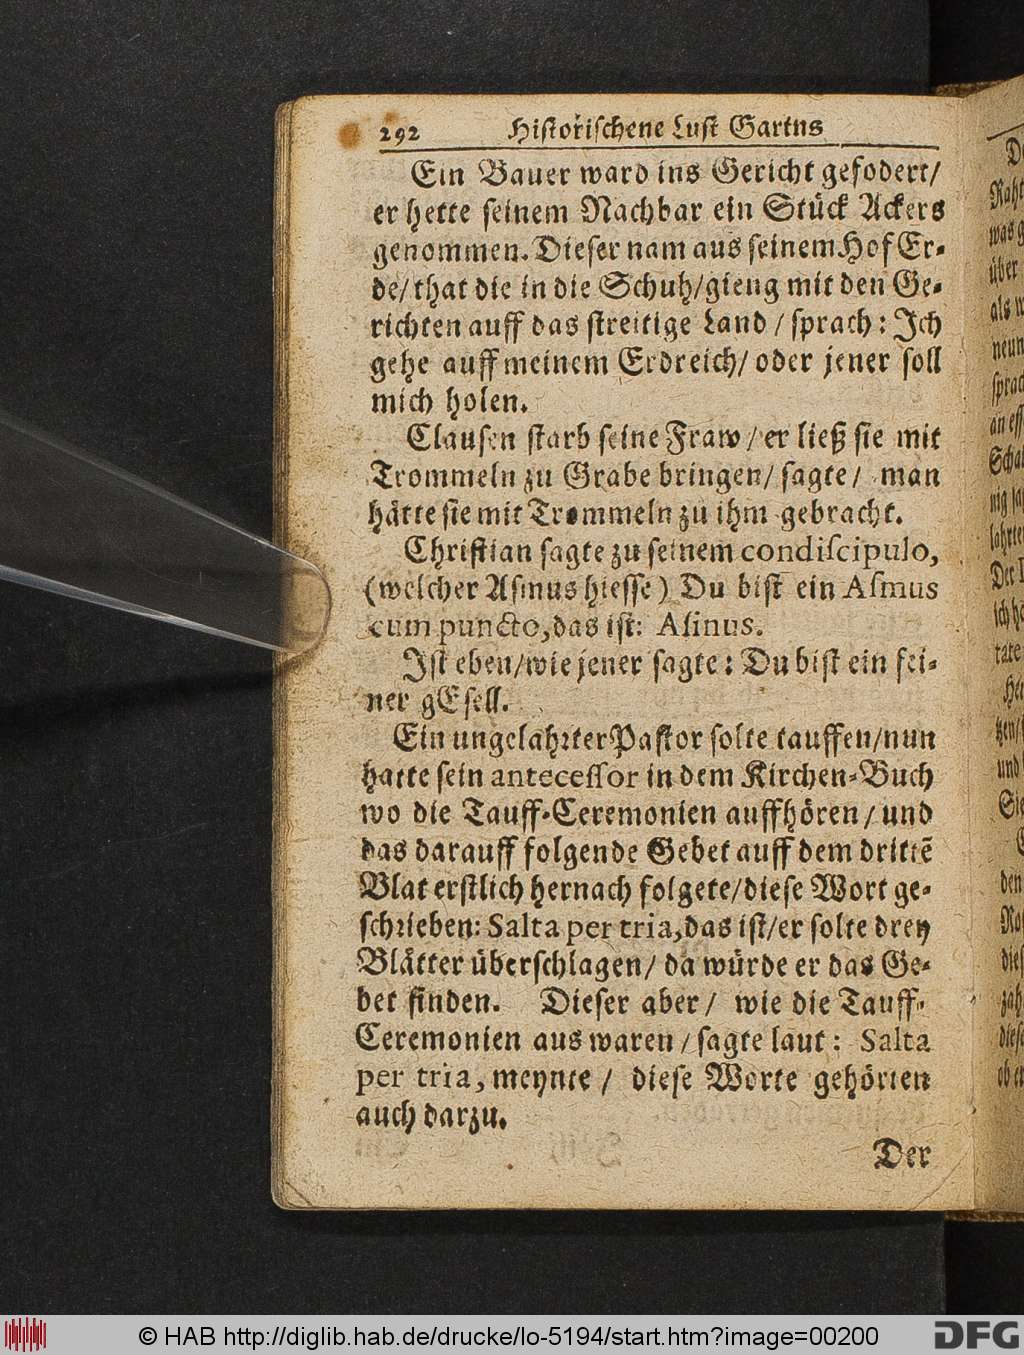 292 Historischene Lust Gartns
Ein Bauer ward ins Gericht gefodert/
er hette seinem Nachbar ein Stück Ackers
genommen. Dieser nam aus seinem Hof Er-
de/ that die in die Schuh/gieng mit den Ge-
richten auff das streitige Land / sprach: Ich
gehe auff meinem Erdreich/ oder jener soll
mich holen.
Clausen starb seine Fraw / er ließ sie mit
Trommeln zu Grabe bringen/ sagte/ man
hätte sie mit Trommeln zu ihm gebracht.
Christian sagte zu seinem condiscipulo,
(welcher Asmus hiesse) Du bist ein Asmus
cum puncto, das ist: Asinus.
Ist eben/wie jener sagte: Du bist ein fei-
ner gEsell.
Ein ungelahrter Pastor solte tauffen/nun
hatte sein antecessor in dem Kirchen-Buch
wo die Tauff-Ceremonien auffhören / und
das darauff folgende Gebet auff dem drittẽ
Blat erstlich hernach folgete/diese Wort ge-
schrieben: Salta per tria, das ist/er solte drey
Blätter überschlagen/ da würde er das Ge-
bet finden. Dieser aber / wie die Tauff-
Ceremonien aus waren / sagte laut: Salta
per tria, meynte / diese Worte gehörten
auch darzu.
Der
© HAB http://diglib.hab.de/drucke/lo-5194/start.htm?image=00200
DFG